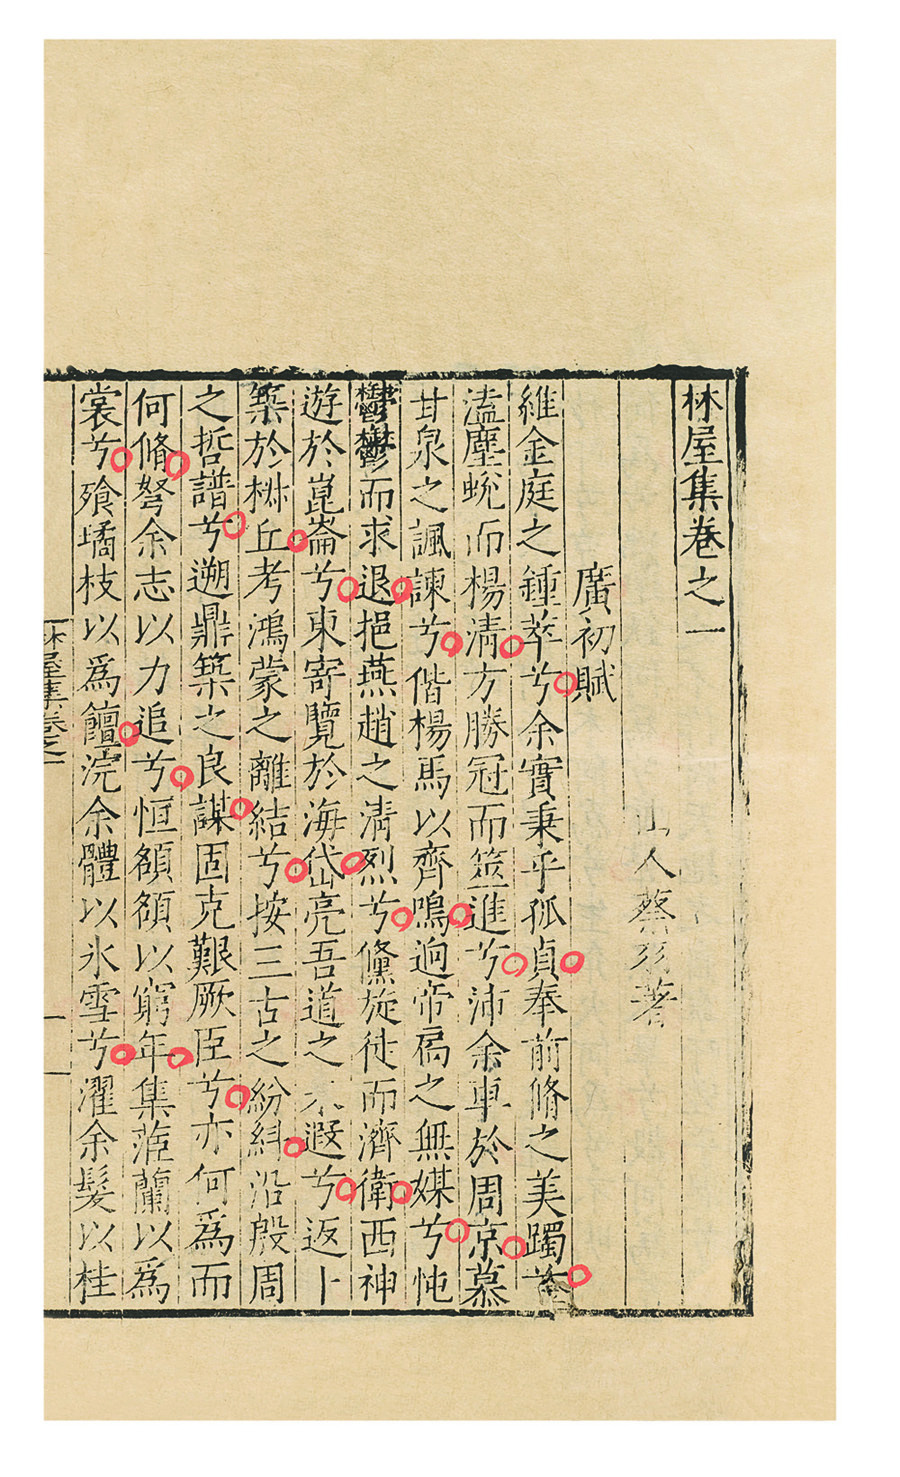 林屋集卷之一
山人蔡羽著
廣初賦
維金庭之鍾萃兮余實秉乎孤貞奉前脩之美躅兮
溘塵蛻而楊清方勝冠而筮進兮沛余車於周京慕
甘泉之諷諫兮偕楊馬以齊鳴逈帝扃之無媒兮忳
鬱鬱而求退挹燕趙之清烈兮儻旋徒而濟衛西神
遊於崑崙兮東寄覽於海岱亮吾道之遐兮返卜
築於林丘考鴻蒙之離結兮按三古之紛糾沿殷周
之哲譜兮遡鼎築之良謀固克艱厥臣兮亦何為而
何脩弩余志以力追兮恒頟頟以窮年集茝蘭以為
裳兮飱橘枝以為饘浣余體以氷雪兮濯余髮以桂
林屋集卷之一
一